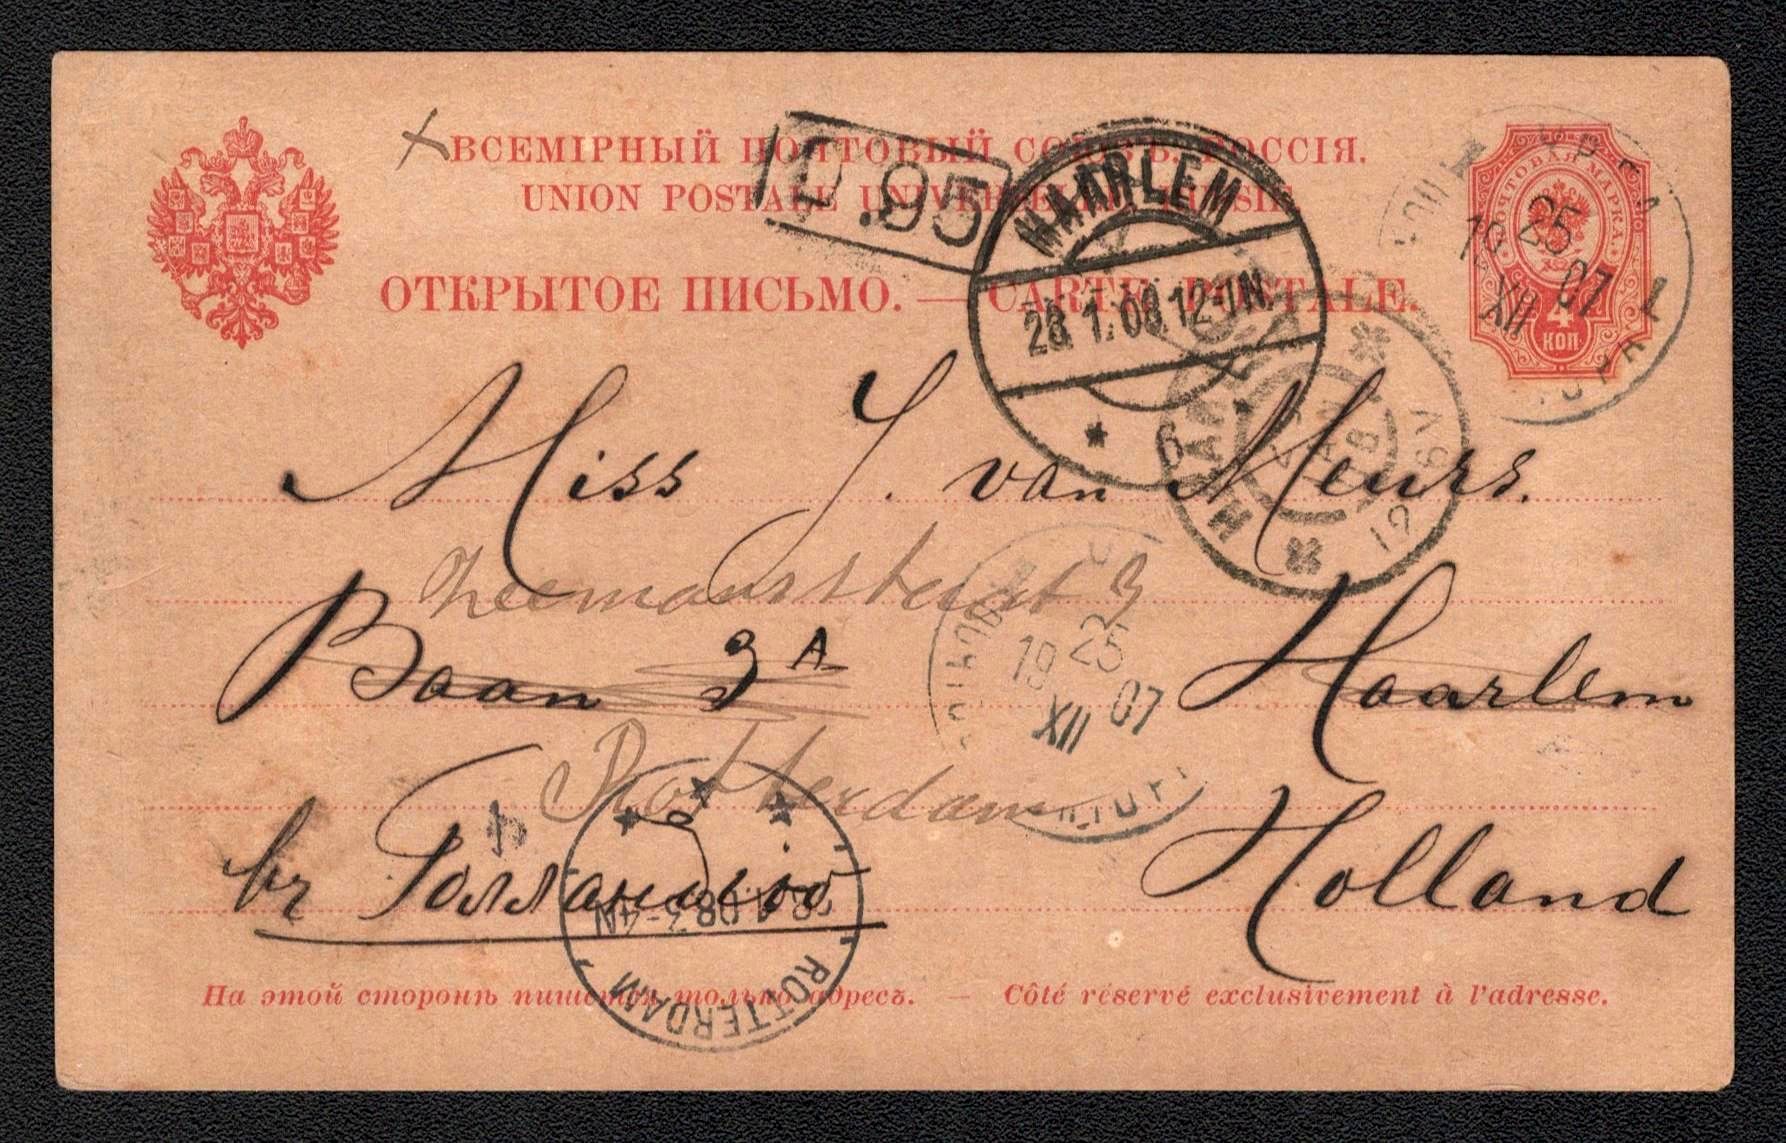 ВСЕМІРНЫЙ ПОЧТОВЫЙ СОЮЗЪ. РОССІЯ.
UNION POSTALE UNIVERSELLE. RUSSIE.
ОТКРЫТОЕ ПИСЬМО. — CARTE POSTALE.
ПОЧТОВАЯ МАРКА.
4
КОП
25
19 07
XII
1
.95
HAARLEM
28.1.08.12-1N.
6
12-6V
Miss J. van Meurs.
3
Baan 3A Haarlem
25
19 07
XII
Rotterdam
въ Голландію Holland
4
28.1.08.3-4N
ROTTERDAM
На этой сторонѣ пишется только адресъ. — Côté réservé exclusivement à l'adresse.